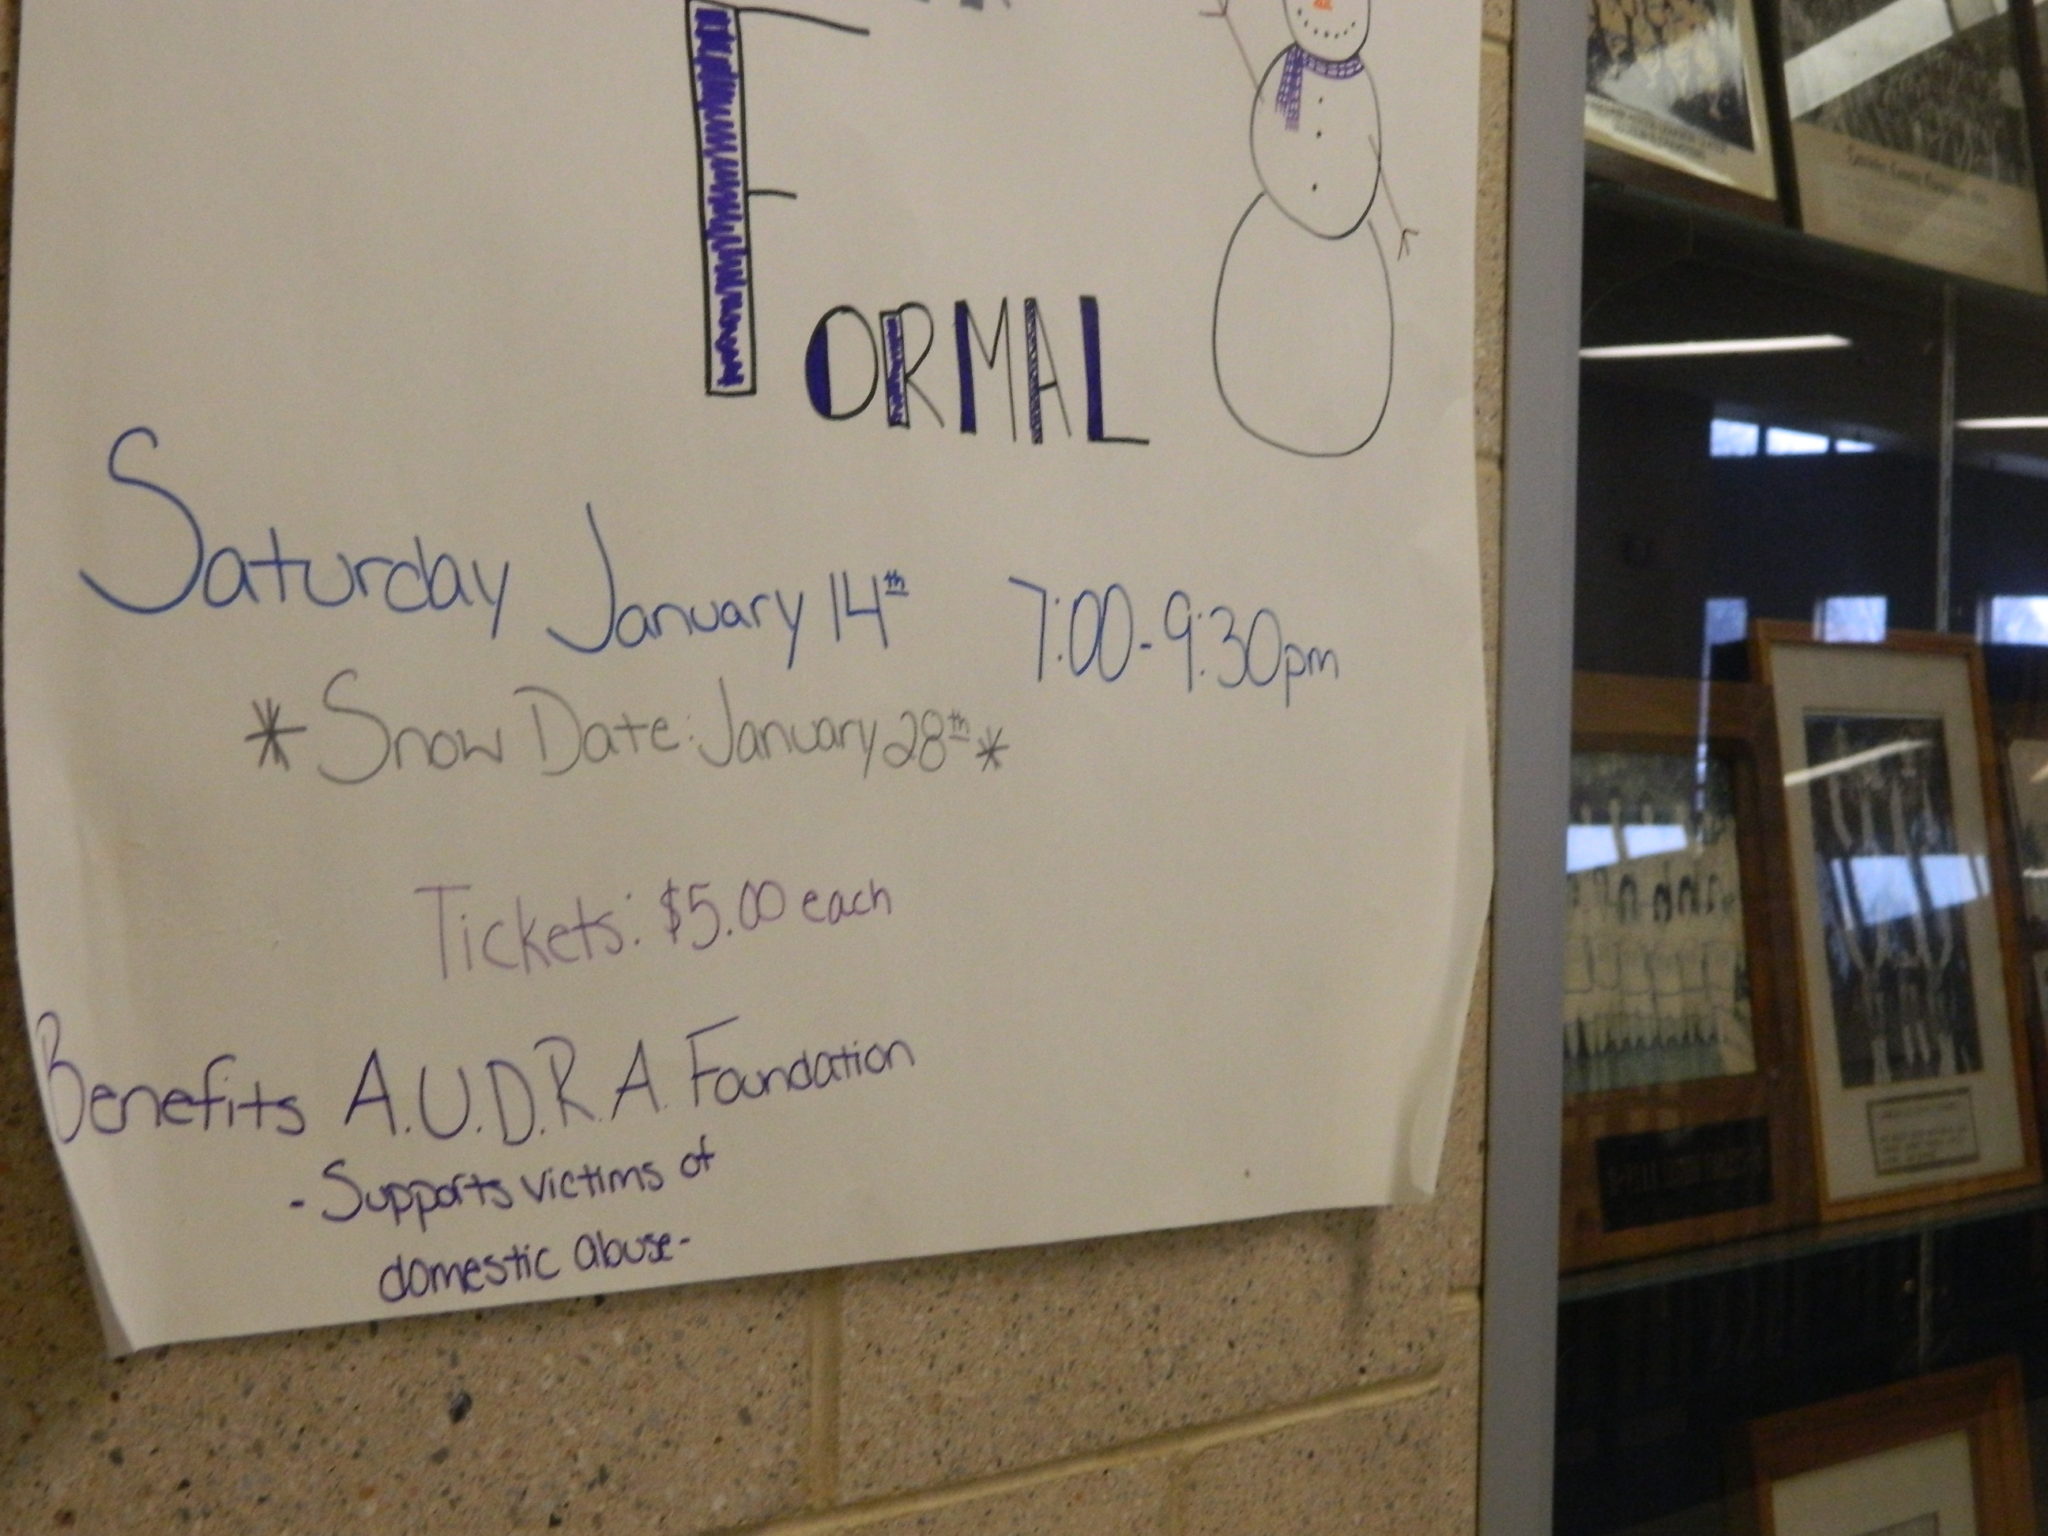 FORMAL
Saturday January 14th 7:00-9:30pm
*Snow Date: January 28th*
Tickets: $5.00 each
Benefits A.U.D.R.A. Foundation
- Supports victims of
domestic abuse-